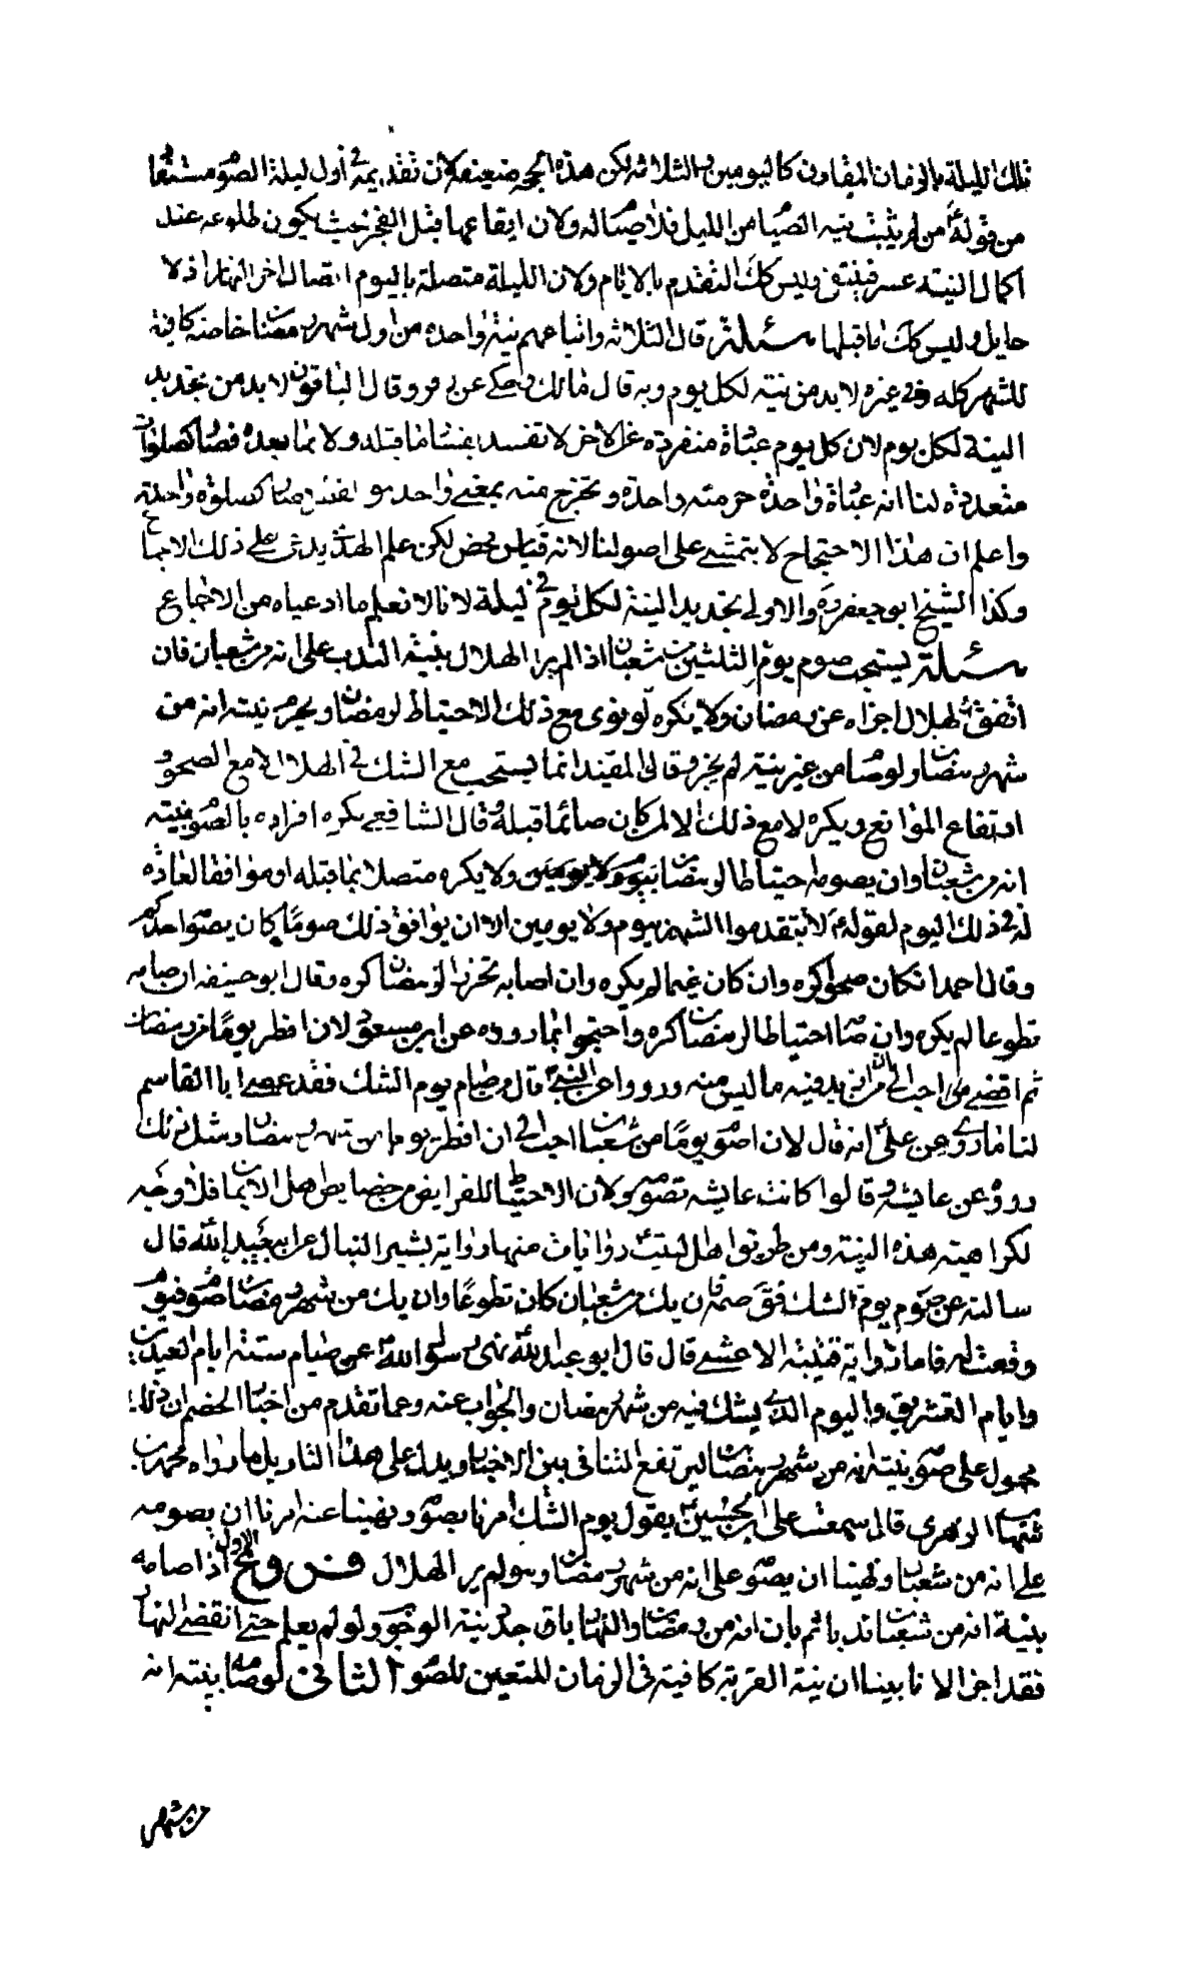 تلك الليلة بالزمان المقارن كاليومين والثلاثة لكن هذه الحجة ضعيفة لان تقديمه في أول ليلة الصوم مستفاد
من قوله ع من لم يثبت نية الصيام من الليل فلا صيام له ولان ايقاعها قبل الفجر بحيث يكون طلوعه عند
اكمال النية عسر فينتفى وليس كك التقدم بالايام ولان الليلة متصلة باليوم اتصال اخر النهار اذ لا
حايل وليس كك ما قبلها مسئلة قال الثلاثة واتباعهم نية واحدة من اول شهر رمضان خاصة كافية
للشهر كله وفي غيره لا بد من نية لكل يوم وبه قال مالك وحكى عن زفر وقال الباقون لا بد من تجديد
النية لكل يوم لان كل يوم عبادة منفردة عن الاخر لا تفسد بفساد ما قبله ولا بما بعده فصار كصلوات
متعددة لنا انه عبادة واحدة حرمته واحدة وتخرج منه بمعنى واحد هو الفطر فصار كصلوة واحدة
واعلم ان هذا الاحتجاج لا يتمشى على اصولنا لانه قياس محض لكن علم الهدى يدعى على ذلك الاجماع
وكذا الشيخ ابو جعفر ره والاولى تجديد النية لكل يوم في ليلة لانا لا نعلم ما ادعياه من الاجماع
مسئلة يستحب صوم يوم الثلثين من شعبان اذا لم ير الهلال بنية الندب على انه من شعبان فان
اتفق الهلال اجزاه عن رمضان ولا يكره لو نوى مع ذلك الاحتياط لرمضان ويحرم نيته انه من
شهر رمضان ولو صام من غير نية لم يجز وقال المفيد انما يستحب مع الشك في الهلال لا مع الصحو و
ارتفاع الموانع ويكره لا مع ذلك الا لمن كان صائما قبله وقال الشافعي يكره افراده بالصوم بنية
انه من شعبان وان يصومه احتياطا لرمضان بيوم ولا يومين ولا يكره متصلا بما قبله او موافقا لعادة
له في ذلك اليوم لقوله ع لا تتقدموا الشهر بيوم ولا يومين الا ان يوافق ذلك صوما كان يصومه احدكم
وقال احمد ان كان صحوا كره وان كان غيما لم يكره وان صامه تحرزا لرمضان كره وقال ابو حنيفة ان صامه
تطوعا لم يكره وان صام احتياطا لرمضان كره واحتجوا بما رووه عن ابن مسعود لان افطر يوما من رمضان
ثم اقضيه احب الى من ان يزيد فيه ما ليس منه ورووا عن النبي ص قال من صام يوم الشك فقد عصى ابا القاسم
لنا ما روى عن على ع انه قال لان اصوم يوما من شعبان احب الى ان افطر يوما من شهر رمضان ومثل ذلك
روى عن عايشة وقالوا كانت عايشة تصومه ولان الاحتياط للفرايض من خصايص اهل الايمان فلا وجه
لكراهية هذه النية ومن طريق اهل البيت ع روايات منها رواية بشير النبال عن ابى عبد الله ع قال
سالته عن صوم يوم الشك فق صمه فان يك من شعبان كان تطوعا وان يك من شهر رمضان فيوم
وفقت له فاما رواية قتيبة الاعشى قال قال ابو عبد الله ع نهى رسول الله ص عن صيام ستة ايام العيدين
وايام التشريق واليوم الذى يشك فيه من شهر رمضان والجواب عنه وعما تقدم من اخبار الخصم ان ذلك
محمول على صومه بنية انه من شهر رمضان ليرتفع التنافى بين الاخبار ويدل على هذا التاويل ما رواه محمد بن
شهاب الزهرى قال سمعت على بن الحسين ع يقول يوم الشك امرنا بصومه ونهينا عنه امرنا ان يصومه
على انه من شعبان ونهينا ان يصومه على انه من شهر رمضان وهو لم ير الهلال فروع الاول اذا صامه
بنية انه من شعبان ندبا ثم بان انه من رمضان والنهار باق جدد نية الوجوب ولو لم يعلم حتى انقضى النهار
فقد اجزا لانا بينا ان نية القربة كافية في الزمان المتعين للصوم الثاني لو صامه بنية انه
من شهر